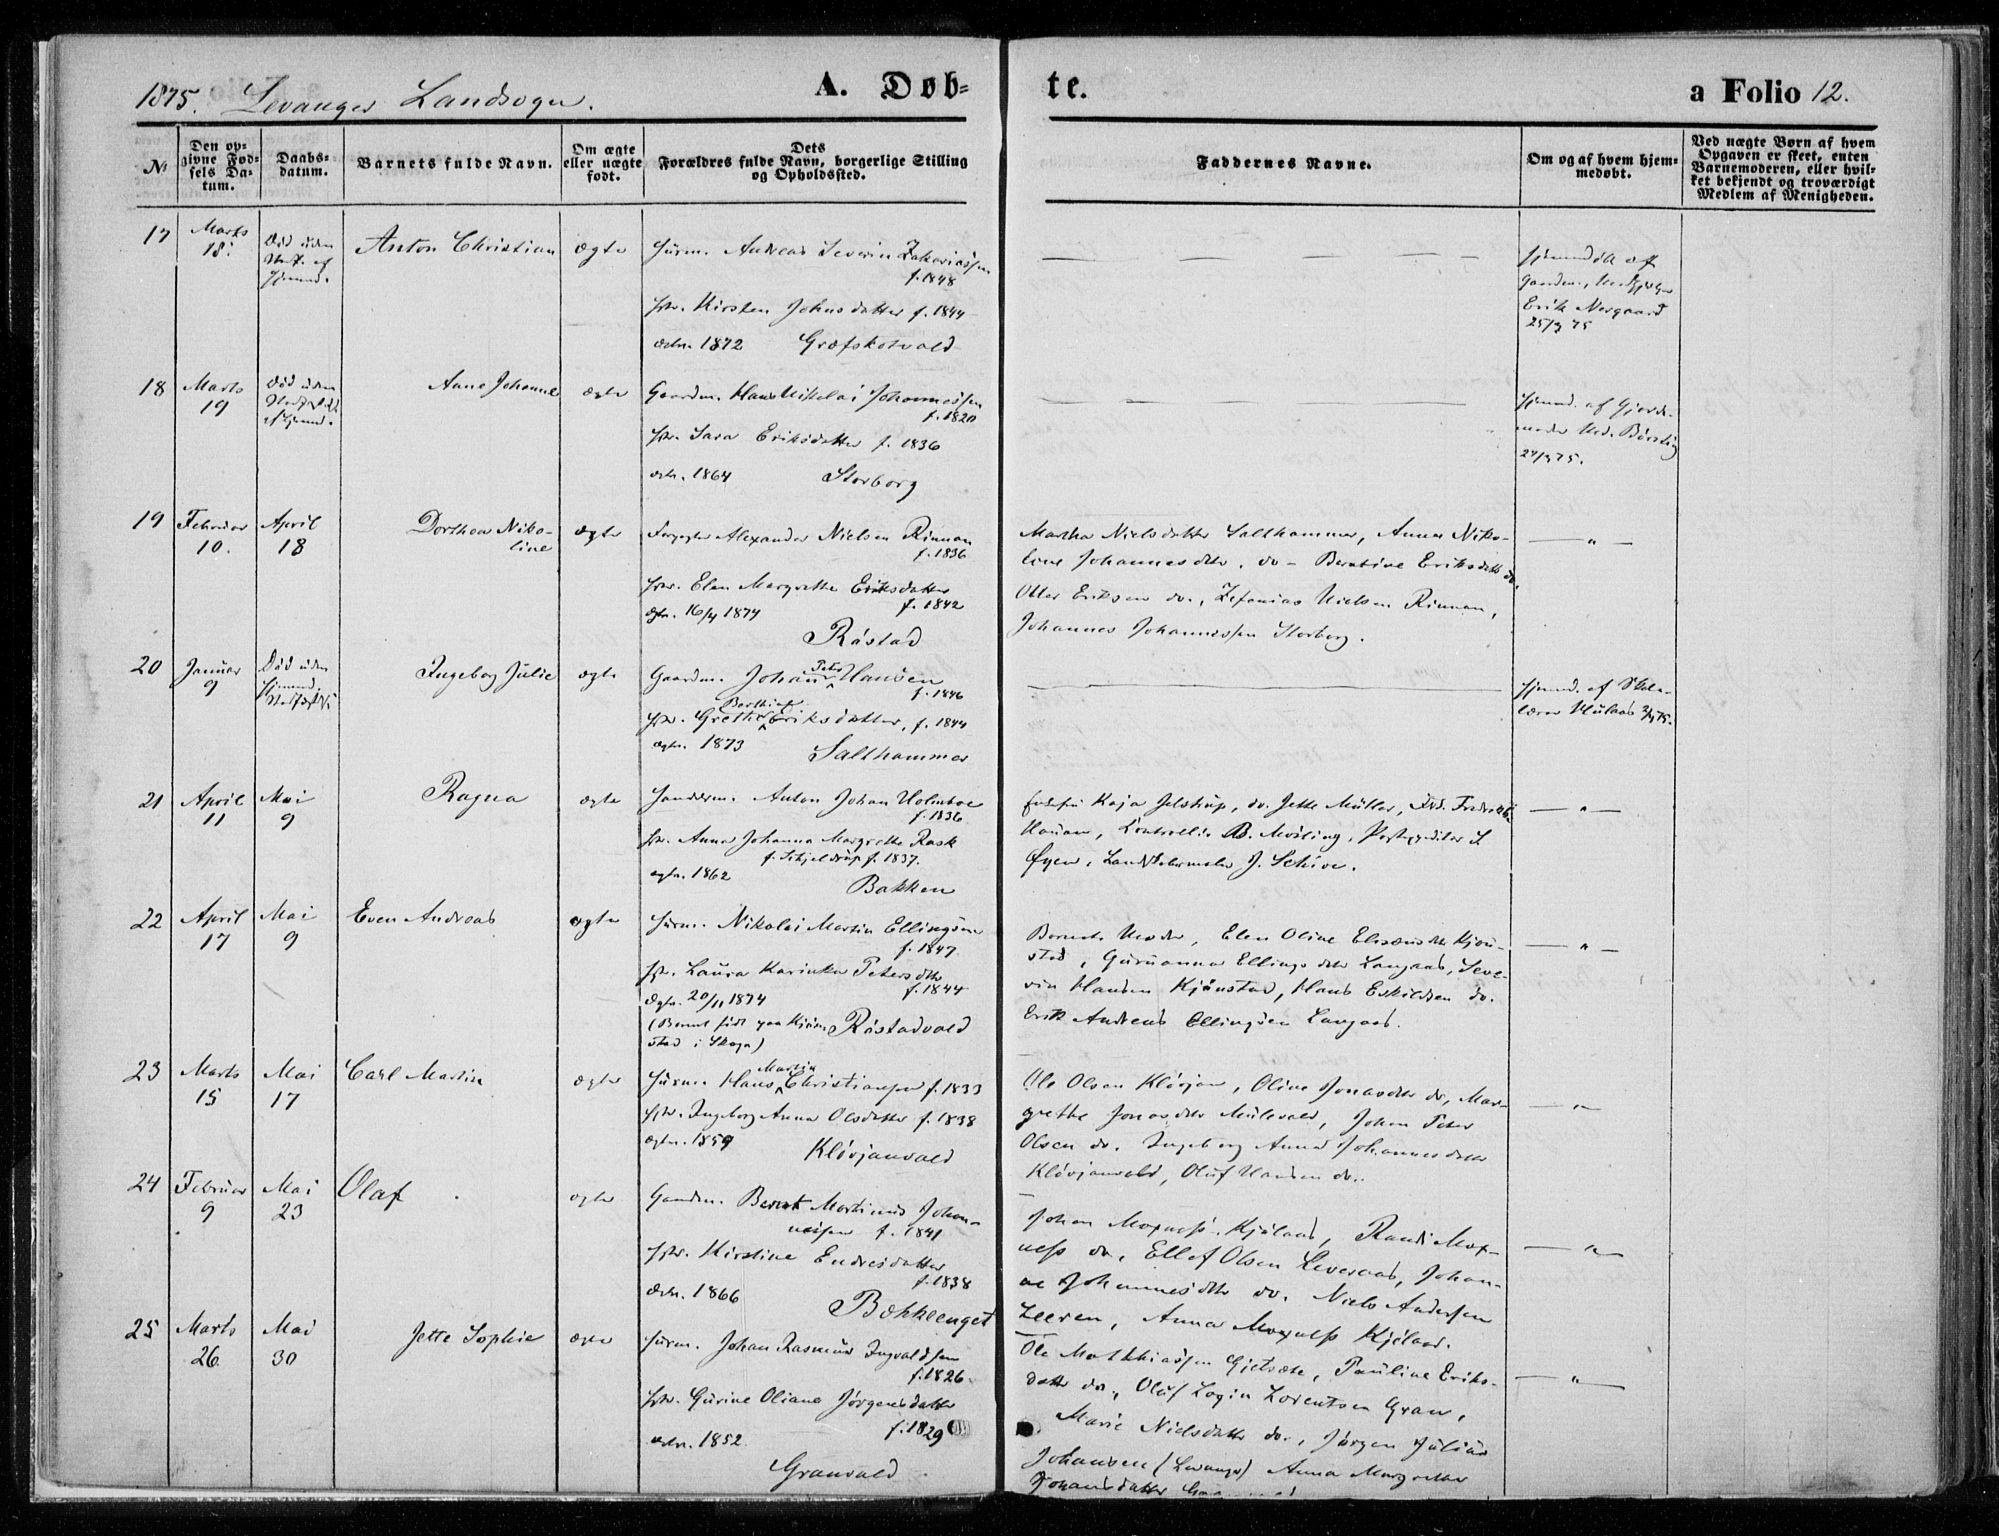 1875. Levanger Landsogn.
A. Døb-
te.
a Folio 12.
No
Den op-
givne Fød-
sels Da-
tum.
Daabs-
datum.
Barnets fulde Navn.
Om ægte
eller uægte
født.
Dets
Forældres fulde Navn, borgerlige Stilling
og Opholdssted.
Faddernes Navne.
Om og af hvem hjem-
medøbt.
Ved uægte Børn af hvem
Opgaven er skeet, enten
Barnemoderen, eller hvil-
ket bekjendt og troværdigt
Medlem af Menigheden.
17
Marts
18.
Død uden
Anton Christian
ægte
Huusm. Andreas Severin Zakariassen
f. 1848
Kirsten Johnsdatter f. 1844
1872 Græfskotvald
Gaardm.
Erik Nesgaard
25/3 75
18
Marts
19
Død uden
Anne Johanne
ægte
Gaardm. Hans Nikolai Johannessen
f. 1820
Sara Eriksdatter f. 1836
ægtv. 1864 Storborg
Hjemd. af Gjorde-
moder Mad. Børsting
24/3 75.
19
Februar
10.
April
18
Dorthea Niko-
line
ægte
Alexander Nielsen Rinnan
f. 1836
Elen Margrethe Eriksdatter
f. 1842
ægtv. 16/4 1874
Råstad
Martha Nielsdatter Salthammer, Anna Niko-
line Johannesdtr. do - Berntine Eriksdatt do.
Otter Eriksen do., Zefanias Nielsen Rinnan,
Johannes Johannessen Storborg.
— " —
20
Januar
9
Død uden
Ingeborg Julie
ægte
Gaardm. Johan Peter Hansen
f. 1846
Grethe Eriksdatter, f. 1844
ægtv. 1873
Salthammer
Hjemd. af Skole-
lærer
21
April
11
Mai
9
Ragna
ægte
Handelsm. Anton Johan Holmboe
f. 1836
Anna Johanna Margrethe Rask
f. Schjeldrup f. 1837.
ægtv. 1862
Bakken
Kaja Jelstrup, do. Jette Müller,
B. Møsling, Postexpeditør
Øyen, J. Schive.
— " —
22
April
17
Mai
9
Even Andreas
ægte
Huusm. Nikolai Martin Ellingsen
f. 1847
Laura Karinka Petersdtr
f. 1844
ægtv. 20/11 1874
(Barnet født paa Kjøn-
stad i Skogn)
Råstadvald
Barnets Moder, Elen Oline Eliseusdtr Kjøn-
stad, Guruanna Ellingsdtr Langaas, Seve-
rin Hansen Kjønstad, Hans Eskildsen do.
Erik Andreas Ellingsen Langaas.
— " —
23
Marts
15
Mai
17
Carl Martin
ægte
Huusm. Hans Martin Christiansen f. 1833
Ingeborg Anna Olsdatter f. 1838
ægtv. 1859
Kløvjanvald
Ole Olsen Kløvjan, Oline Jonasdtr do, Mar-
grethe Jonasdtr Mulevald, Johan Peter
Olsen do. Ingeborg Anna Johannesdatter
Kløvjanvald, Oluf Hansen do.
— " —
24
Februar
9
Mai
23
Olaf
ægte
Gaardm. Bernt Martinus Johan-
nessen f. 1841
Kirstine Endresdatter
f. 1838
ægtv. 1866
Bækkeenget
Johan Moxness Kjølaas, Randi Mox-
ness do, Ellef Olsen Leveraas, Johan-
ne Johannesdtr do. Niels Andersen
Leeren, Anna Moxness Kjølaas.
— " —
25
Marts
26
Mai
30
Jette Sophie
ægte
Huusm. Johan Rasmus Ingvaldsen
f. 1826.
Gurine Oliane Jørgensdatter
f. 1829
ægtv. 1852.
Granvald
Ole Matthiassen Gjetvæte, Pauline Eriks-
datter do., Oluf Login Lorentsen Gran,
Marie Nielsdatter do., Jørgen Julius
Johansen (Levanger) Anna Margrethe
Johansdatter
— " —